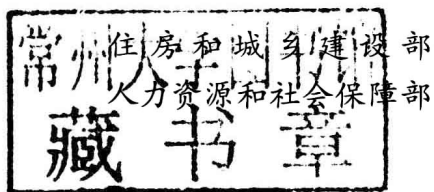 住房和城乡建设部
人力资源和社会保障部
常州
藏书章